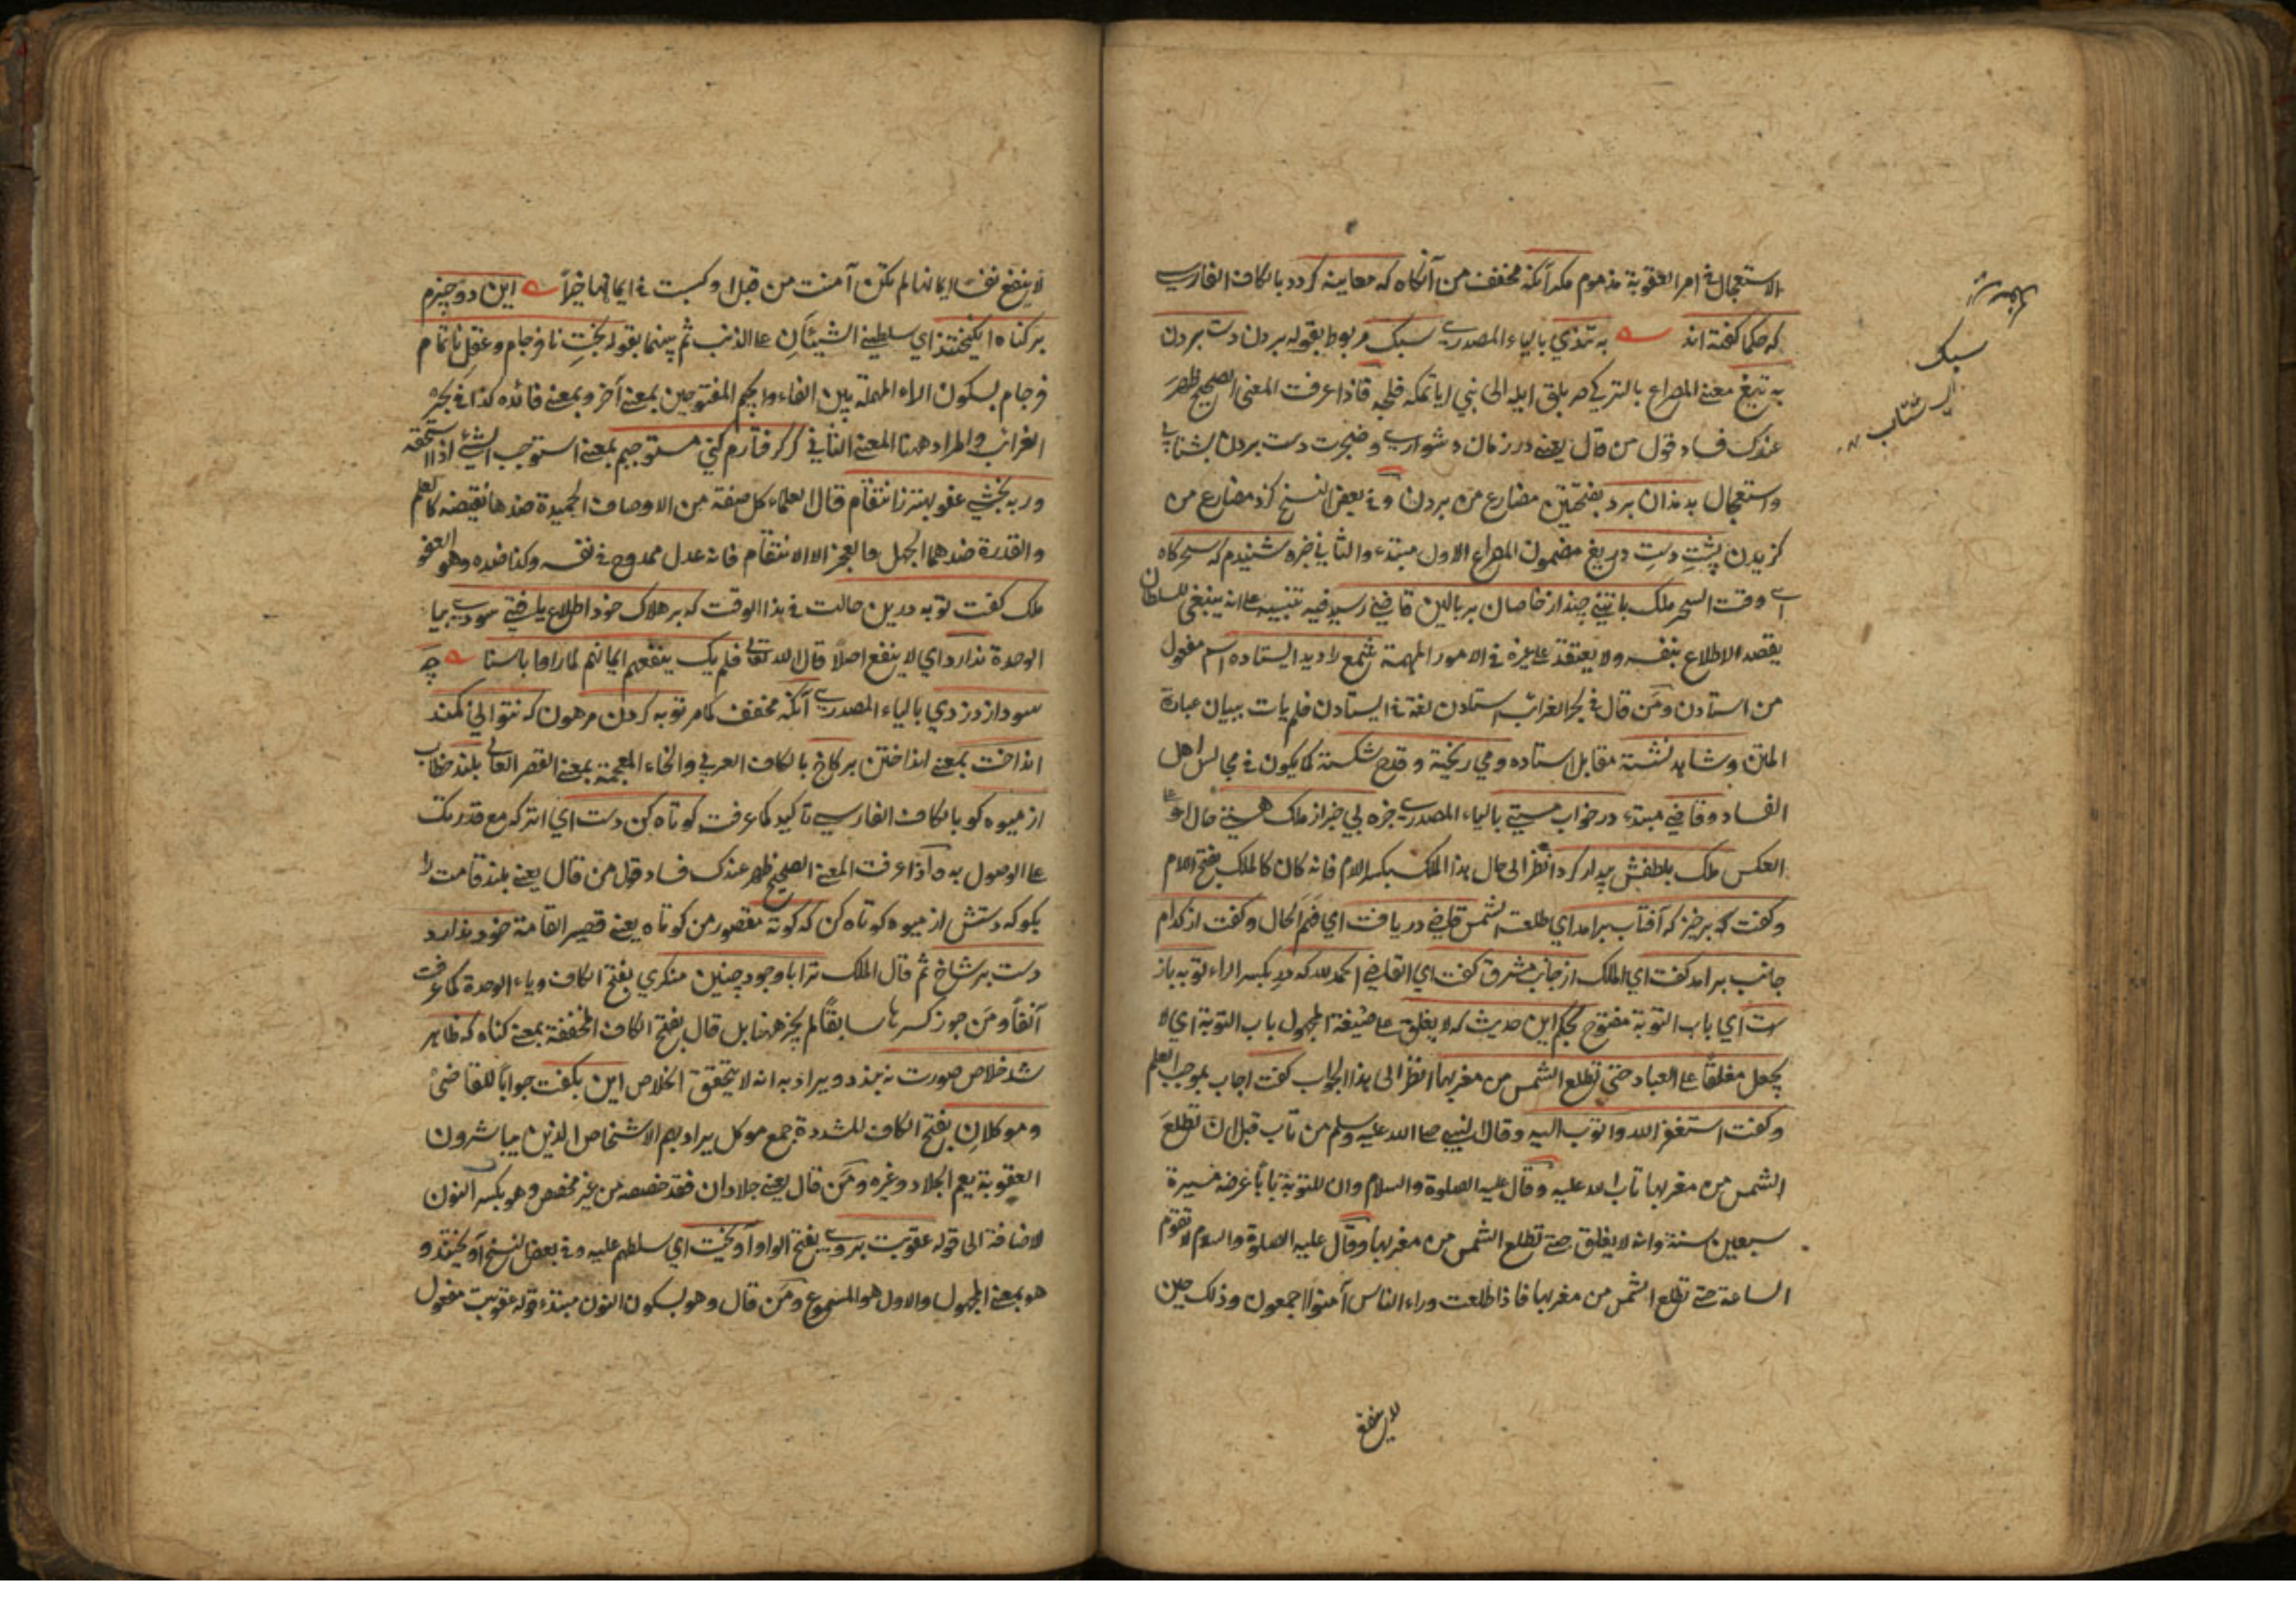 الاستعجال في امر العقوبة مذموم مكر آنكه مخفف من آنكاه كه معاينه كردد بالكاف الفارسي
كه حكما كفته اند به تندي بالياء المصدرية سبك مربوط بقوله بردن دست بردن
به تيغ معنى المصراع بالتركي فاذا عرفت المعنى الصحيح ظهر
عندك فساد قول من قال يعني در زمان دشواري و ضجرت دست بردن بشتابي
واستعجال بدندان برد بفتحتين مضارع من بردن وفي بعض النسخ كزد مضارع من
كزيدن پشتِ دستِ دريغ مضمون المصراع الاول مبتدء والثاني خبره شنيدم كه سحركاه
اي وقت السحر ملك باتني چند از خاصان بر بالين قاضي رسيد فيه تنبيه على انه ينبغي للسلطان
يقصد الاطلاع بنفسه ولا يعتقد على غيره في الامور المهمة شمع را ديد ايستاده اسم مفعول
من استادن ومَن قال في بحر الغرائب استادن لغة في ايستادن فلم يات ببيان عبارة
المتن وشاهد نشسته مقابل استاده ومي ريخته وقدح شكسته كما يكون في مجالس اهل
الفساد وقاضي مبتدء در خواب مستي بالياء المصدرية خبره بي خبر از ملك هستي قال او على
العكس ملك بلطفش بيدار كرد انظر الى حال هذا الملك بكسر اللام فانه كان كالملك بفتح اللام
وكفت كه برخيز كه آفتاب برامد اي طلعت الشمس قاضي دريافت اي فهم الحال وكفت از كدام
جانب برامد كفت اي الملك از جانب مشرق كفت اي القاضي الحمد لله كه درِ بكسر الراء توبه باز
ست اي باب التوبة مفتوح بحكم اين حديث كه لا يغلق على صيغة المجهول باب التوبة اي لا
يجعل مغلقًا على العباد حتى تطلع الشمس من مغربها انظر الى هذا الجواب كفت اجاب بموجب العلم
وكفت استغفر الله واتوب اليه وقال النبي صلى الله عليه وسلم من تاب قبل ان تطلعَ
الشمس من مغربها تاب الله عليه وقال عليه الصلوة والسلام وان للتوبة بابًا عرضه مسيرة
سبعين سنة وانه لا يغلق حتى تطلع الشمس من مغربها وقال عليه الصلوة والسلام لا تقوم
الساعة حتى تطلع الشمس من مغربها فاذا طلعت وراء الناس آمنوا اجمعون وذلك حين
سبك
شتاب
لا ينفع
لا ينفع نفسا ايمانها لم تكن آمنت من قبل او كسبت في ايمانها خيراً اين دو چيزم
بر كناه انكيختند اي سلطني الشيئان على الذنب ثم بينهما بقوله بختِ نا فرجام وعقلِ ناتمام
فرجام بسكون الراء المهملة بين الفاء والجيم المفتوحين بمعنى آخر وبمعنى فائده كذا في بحر
الغرائب والمراد ههنا المعنى الثاني كر كرفتارم كني مستوجبم بمعنى استوجب الشيء اذا استحقه
ور ببخشي عفو بهتر ز انتقام قال العلماء كل صفة من الاوصاف الحميدة ضدها نقيضه كالعلم
والقدرة ضدهما الجهل والعجز الا الانتقام فانه عدل ممدوح في نفسه وكذا ضده وهو العفو
ملك كفت توبه درين حالت في هذا الوقت كه بر هلاك خود اطلاع يافتي سودي بيا
الوحدة ندارد اي لا ينفع اصلًا قال الله تعالى فلم يك ينفعهم ايمانهم لما راوا باسنا چه
سود از دزدي بالياء المصدرية آنكه مخفف كما مر توبه كردن مرهون كه نتوالي كمند
انداخت بمعنى انداختن بر كاخ بالكاف العربي والخاء المعجمة بمعنى القصر العالي بلند خطاب
از ميوه كو بالكاف الفارسي تاكيد كما عرفت كوتاه كن دست اي اترك مع قدرتك
على الوصول به واذا عرفت المعنى الصحيح ظهر عندك فساد قول من قال يعني بلند قامت را
بكو كه دستش از ميوه كوتاه كن كه كوته مقصور من كوتاه يعني قصير القامة خود ندارد
دست بر شاخ ثم قال الملك ترا باوجود چنين منكري بفتح الكاف وياء الوحدة كما عرفت
آنفًا ومَن جوز كسرها سابقًا لم يجز ههنا بل قال بفتح الكاف المخففة بمعنى كناه كه ظاهر
شد خلاص صورت نبندد ويراد به انه لا يتحقق الخلاص اين بكفت جوابًا للقاضي
وموكلانِ بفتح الكاف المشددة جمع موكل يراد بهم الاشخاص الذين يباشرون
العقوبة يعم الجلاد وغيره ومَن قال يعني جلادان فقد خصصه من غير مخصص وهو بكسر النون
لاضافة الى قوله عقوبت بروي بفتح الواو آويخت اي سلطهم عليه وفي بعض النسخ آويختند و
هو بمعنى المجهول والاول هو المسموع ومَن قال وهو بسكون النون مبتدء قوله عقوبت مفعول